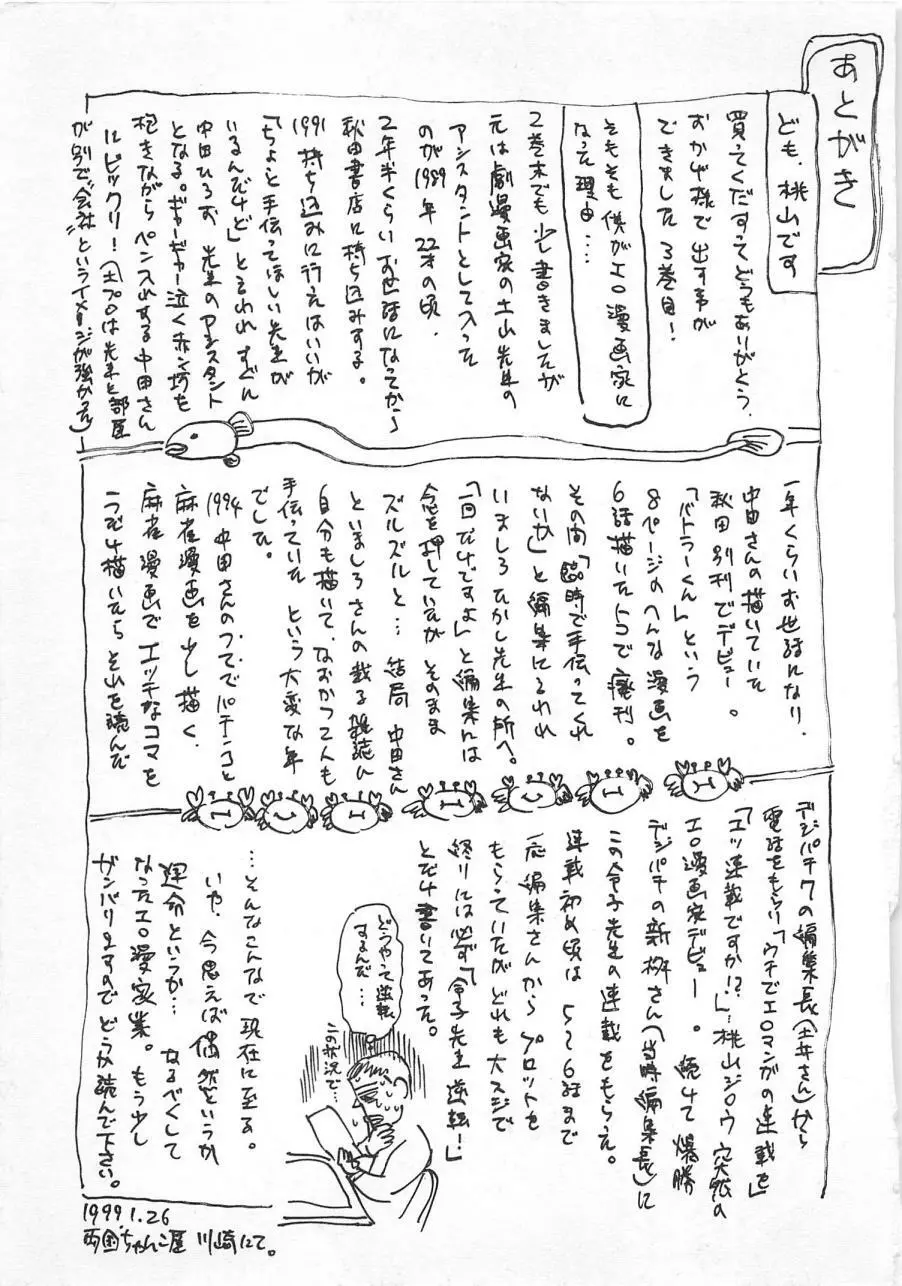 あとがき
ども、桃山です
買ってくだすってどうもありがとう。
おかげ様で出す事が
できました3巻目!
そもそも僕がエロ漫画家に
なった理由…
2巻末でも少し書きましたが
元は劇漫画家の土山先生の
アシスタントとして入った
のが1989年22才の頃。
2年半くらいお世話になってから
秋田書店に持ち込みする。
1991持ち込みに行えばいいが
「ちょと手伝ってほしい先生が
いるんだけど」と言われすぐに
中田ひろお先生のアシスタント
となる。ギャーギャー泣く赤ン坊を
抱きながらペン入れする中田さん
にビックリ!(土プロは先生と部屋
が別で"会社"というイメージが強かった)
一年くらいお世話になり、
中田さんの描いていた
秋田別刊でデビュー。
「バトラーくん」という
8ページのへんな漫画を
6話描いたトコで廃刊。
その間「臨時で手伝ってくれ
ないか」と編集に言われ
いましろたかし先生の所へ。
「一回だけですよ」と編集には
念を押していたがそのまま
ズルズルと…結局中田さん
といましろさんの載る雑誌に
自分も描いて、なおかつ2人も
手伝っていたという大変な年
でした。
1994中田さんのつてでパチンコと
麻雀漫画を少し描く、
麻雀漫画でエッチなコマを
1つだけ描いたらそれを読んだ
デジパチ7の編集長(土井さん)から
電話をもらい「ウチでエロマンガの連載を」
「エッ連載ですか!?」…桃山ジロウ突然の
エロ漫画家デビュー。続けて爆勝
デジパチの新桝さん(当時編集長)に
この令子先生の連載をもらえ。
連載初め頃は5~6話まで
一応編集さんからプロットを
もらっていたがどれも大スジで
終りには必ず「令子先生逆転!」
とだけ書いてあった。
どうやって逆転
するんだ…
この状況で…
…そんなこんなで現在に至る。
いや、今思えば偶然というか
運命というか…なるべくして
なったエロ漫家業。もう少し
ガンバリますのでどうか読んで下さい。
1999.1.26
両国ちゃんこ屋川崎にて。